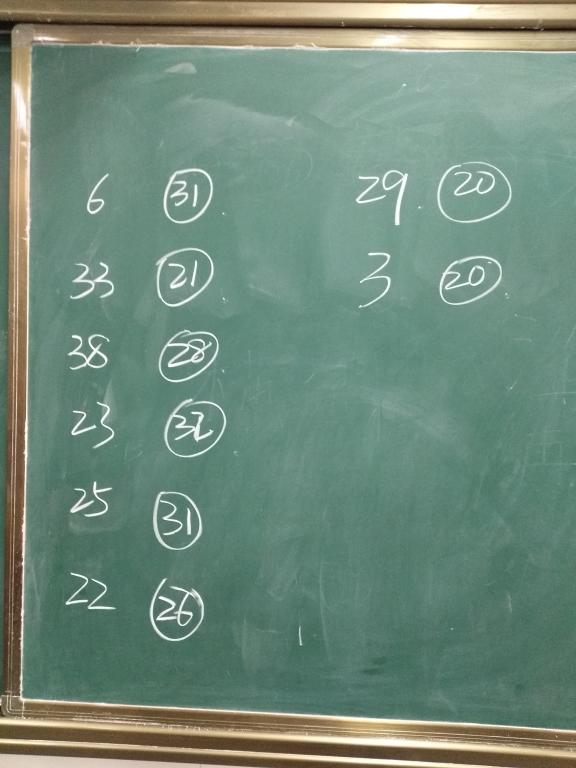 6 31
33 21
38 28
23 32
25 31
22 26
29 20
3 20